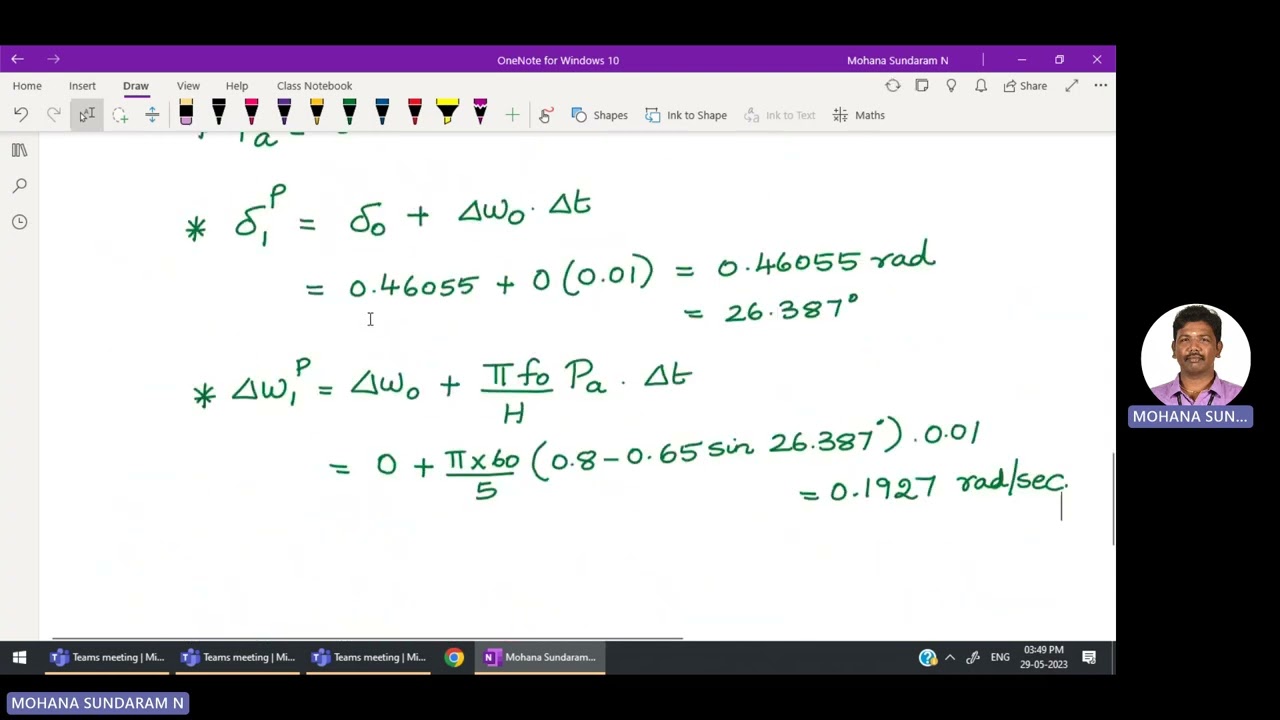 OneNote for Windows 10
Mohana Sundaram N
Home Insert Draw View Help Class Notebook
Share
Shapes Ink to Shape Ink to Text Maths
a =
* δ₁ᴾ = δ₀ + Δω₀ · Δt
= 0.46055 + 0 (0.01) = 0.46055 rad
= 26.387°
* Δω₁ᴾ = Δω₀ + πf₀/H Pₐ · Δt
= 0 + π×60/5 (0.8 - 0.65 sin 26.387°) . 0.01
= 0.1927 rad/sec.
MOHANA SUN...
Teams meeting | Mi... Teams meeting | Mi... Teams meeting | Mi... Mohana Sundaram...
ENG
03:49 PM
29-05-2023
MOHANA SUNDARAM N